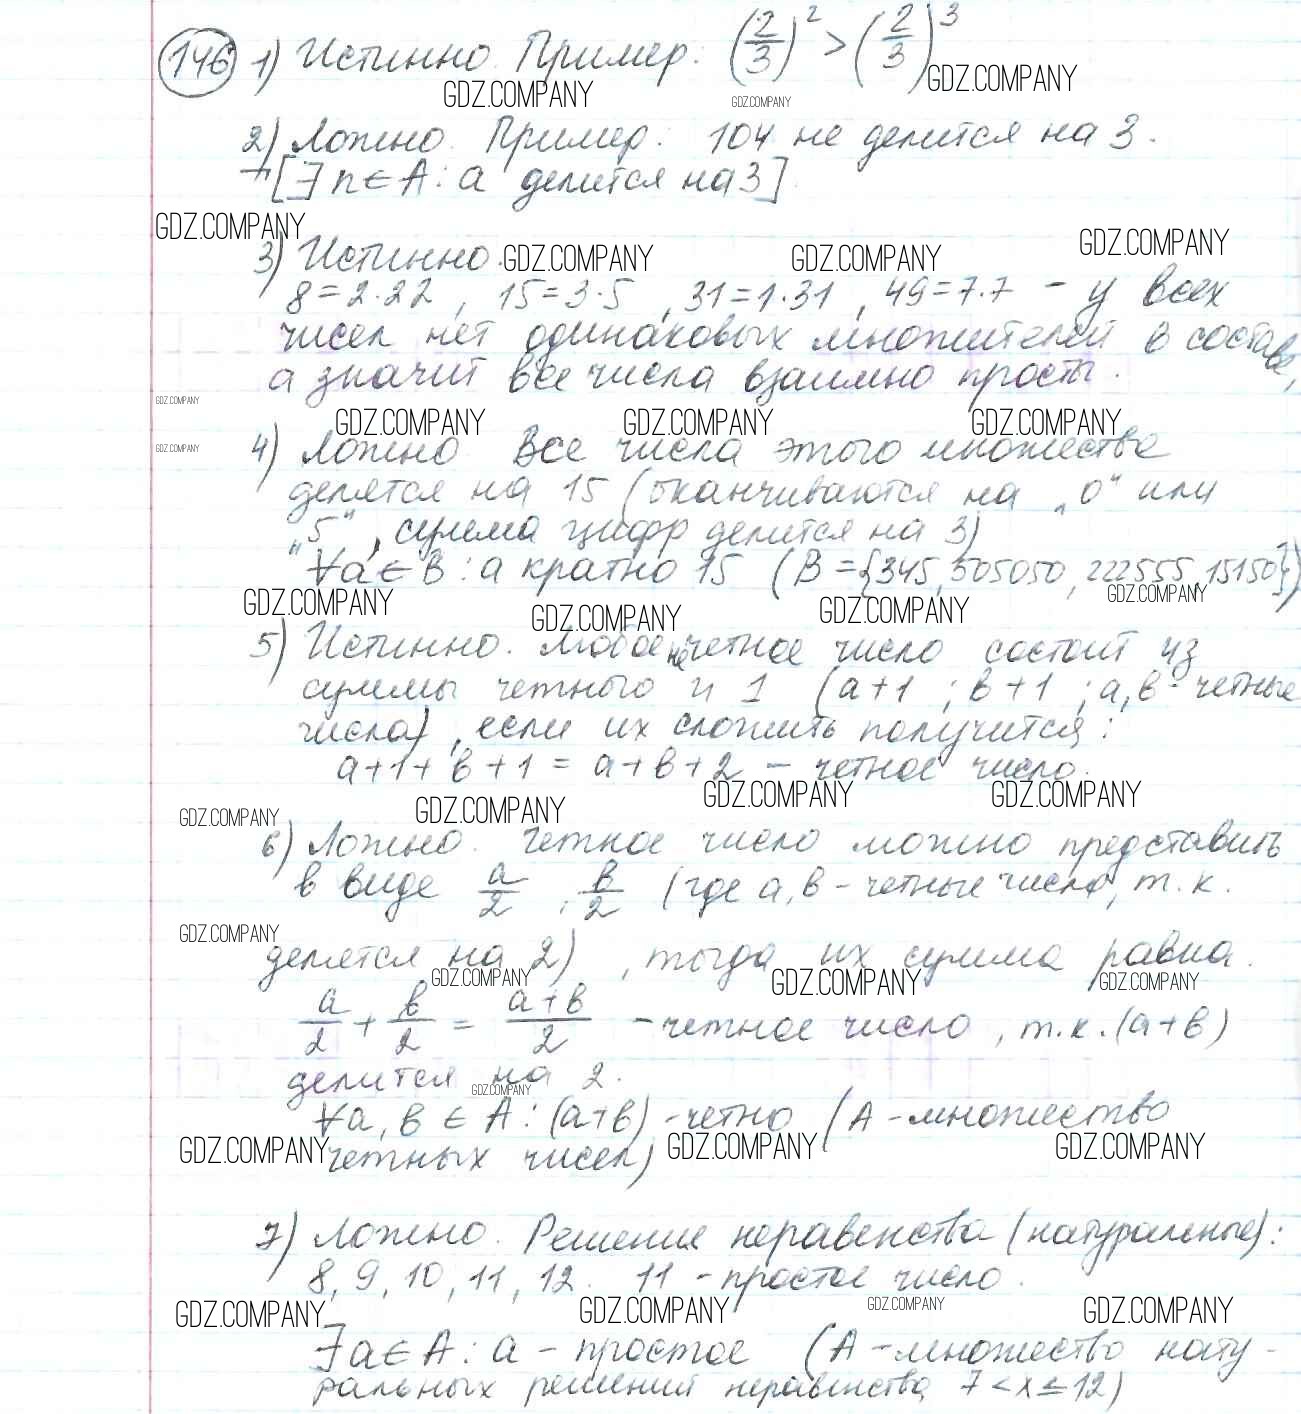 146 1) Истинно. Пример: (2/3)² > (2/3)³
GDZ.COMPANY GDZ.COMPANY GDZ.COMPANY
2) Ложно. Пример: 104 не делится на 3.
[∃ n ∈ A: a делится на 3]
GDZ.COMPANY
3) Истинно. GDZ.COMPANY GDZ.COMPANY GDZ.COMPANY
8=2·22, 15=3·5, 31=1·31, 49=7·7 - у всех
чисел нет одинаковых множителей в составе,
а значит все числа взаимно просты.
GDZ.COMPANY
GDZ.COMPANY GDZ.COMPANY GDZ.COMPANY
GDZ.COMPANY 4) Ложно. Все числа этого множества
делятся на 15 (оканчиваются на „0" или
„5", сумма цифр делится на 3)
∀a ∈ B: a кратно 15 (B = {345, 505050, 222555, 15150})
GDZ.COMPANY GDZ.COMPANY GDZ.COMPANY GDZ.COMPANY
5) Истинно. Любое нечетное число состоит из
суммы четного и 1 (a+1; b+1; a, b - четные
числа), если их сложить получится:
a+1+b+1 = a+b+2 - четное число.
GDZ.COMPANY GDZ.COMPANY GDZ.COMPANY GDZ.COMPANY
6) Ложно. Четное число можно представить
в виде a/2, b/2 (где a, b - четные числа, т.к.
GDZ.COMPANY
делятся на 2), тогда их сумма равна.
GDZ.COMPANY GDZ.COMPANY GDZ.COMPANY
a/2 + b/2 = (a+b)/2 - четное число, т.к. (a+b)
делится на 2.
GDZ.COMPANY
∀a, b ∈ A: (a+b) - четно (A - множество
GDZ.COMPANY четных чисел) GDZ.COMPANY GDZ.COMPANY
7) Ложно. Решение неравенства (натуральные):
8, 9, 10, 11, 12. 11 - простое число.
GDZ.COMPANY GDZ.COMPANY GDZ.COMPANY GDZ.COMPANY
∃ a ∈ A: a - простое (A - множество нату-
ральных решений неравенства 7 < x ≤ 12)